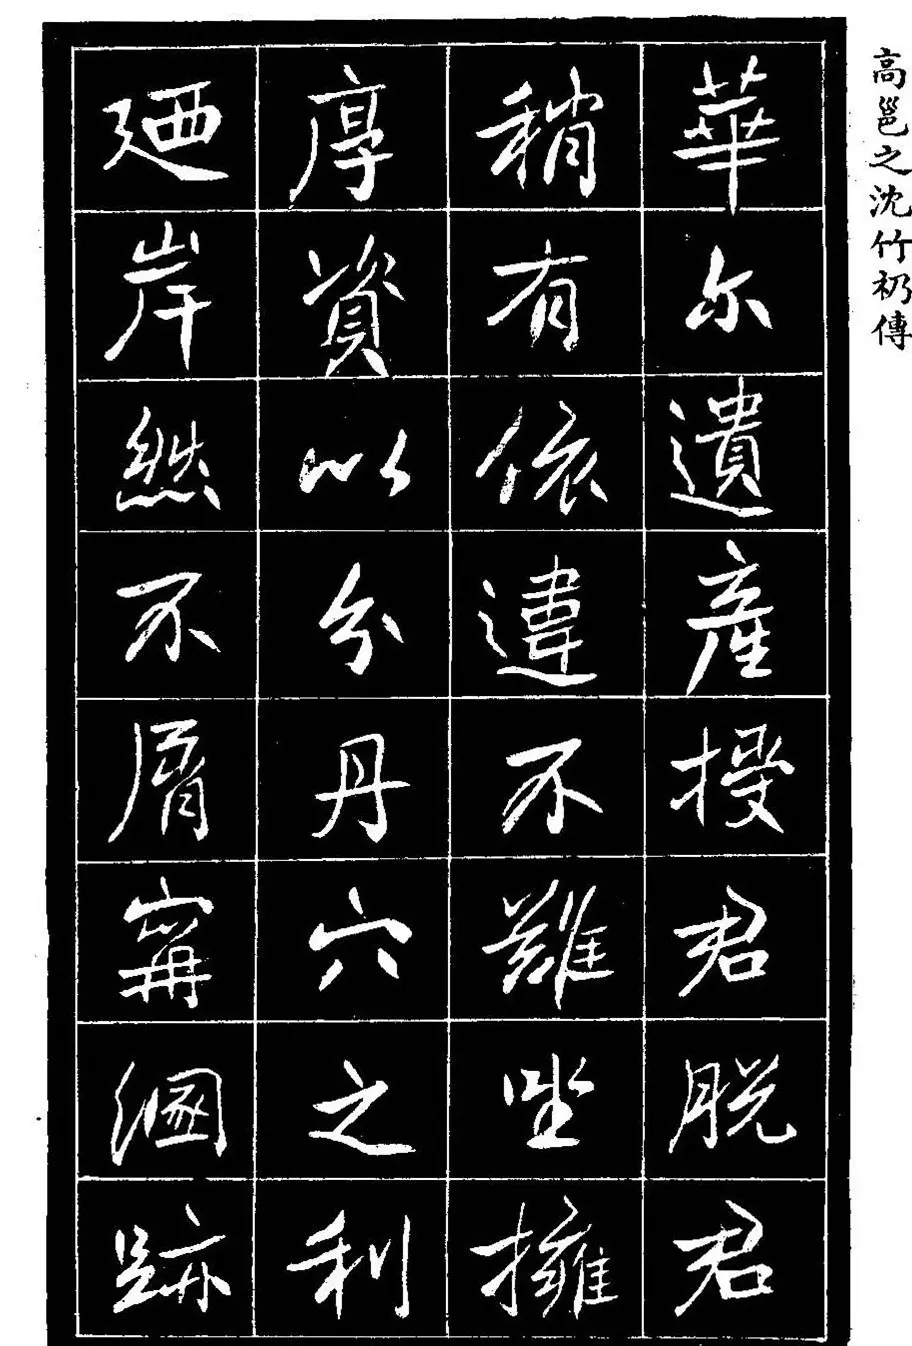 高邕之沈竹礽傳
華尔遺產授君脫君
稍有依違不難坐擁
厚資以分丹穴之利
廼岸然不屑寗溷跡